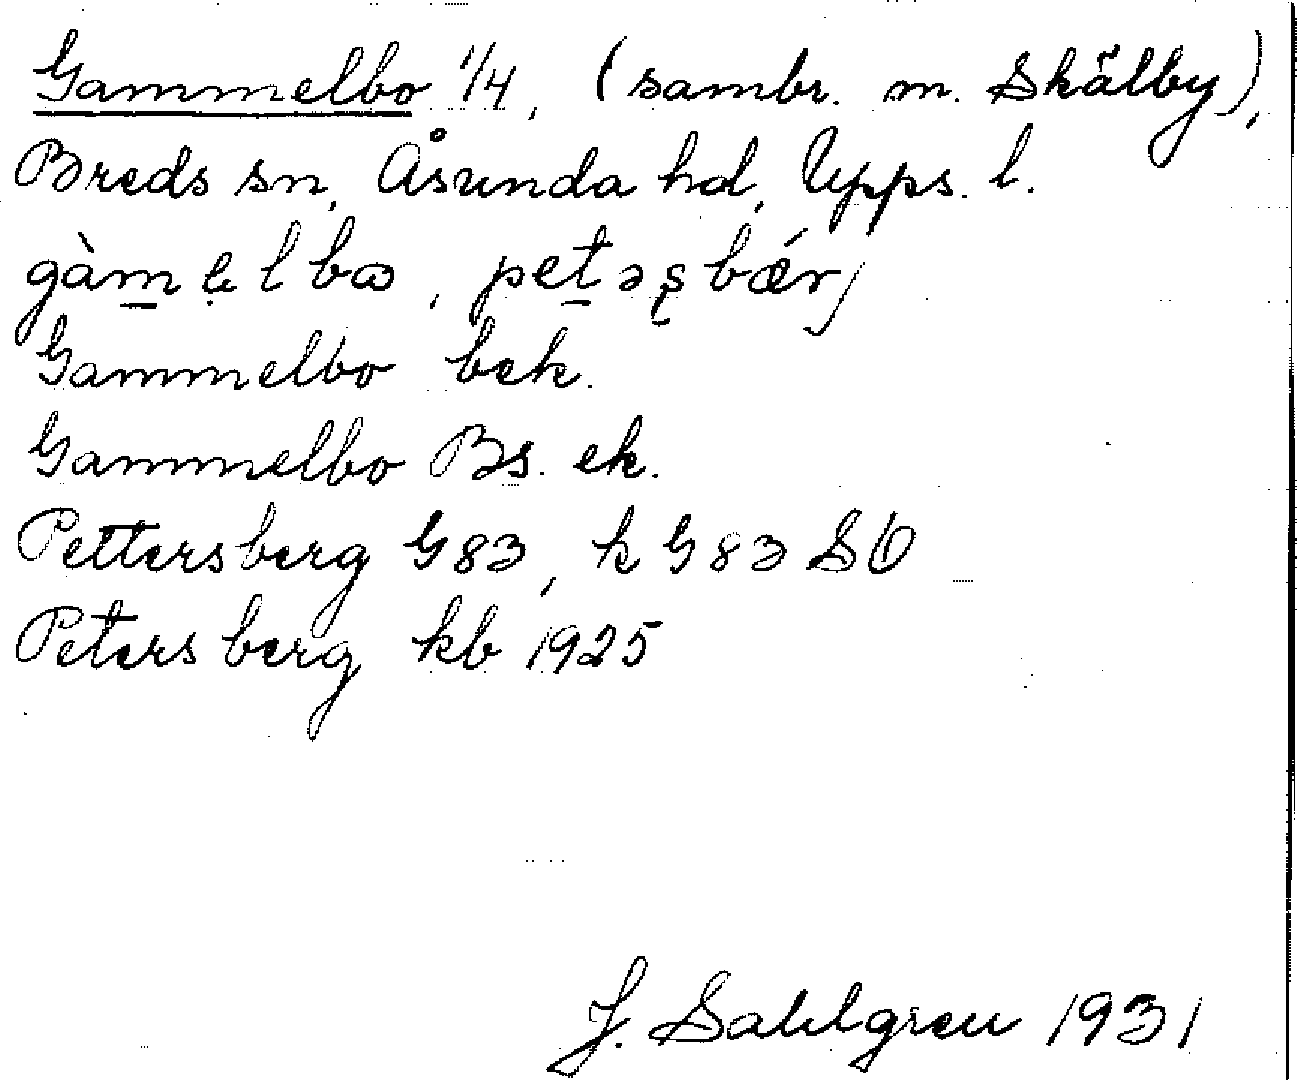 Gammelbo 1/4, (sambr. m. Skälby),
Breds sn, Åsunda hd, Upps. l.
gàm̲ę l bɷ, pet̲əʂbǽrj
Gammelbo bek.
Gammelbo Bs. ek.
Pettersberg G83, k G83 SO
Petersberg kb 1925
J. Sahlgren 1931